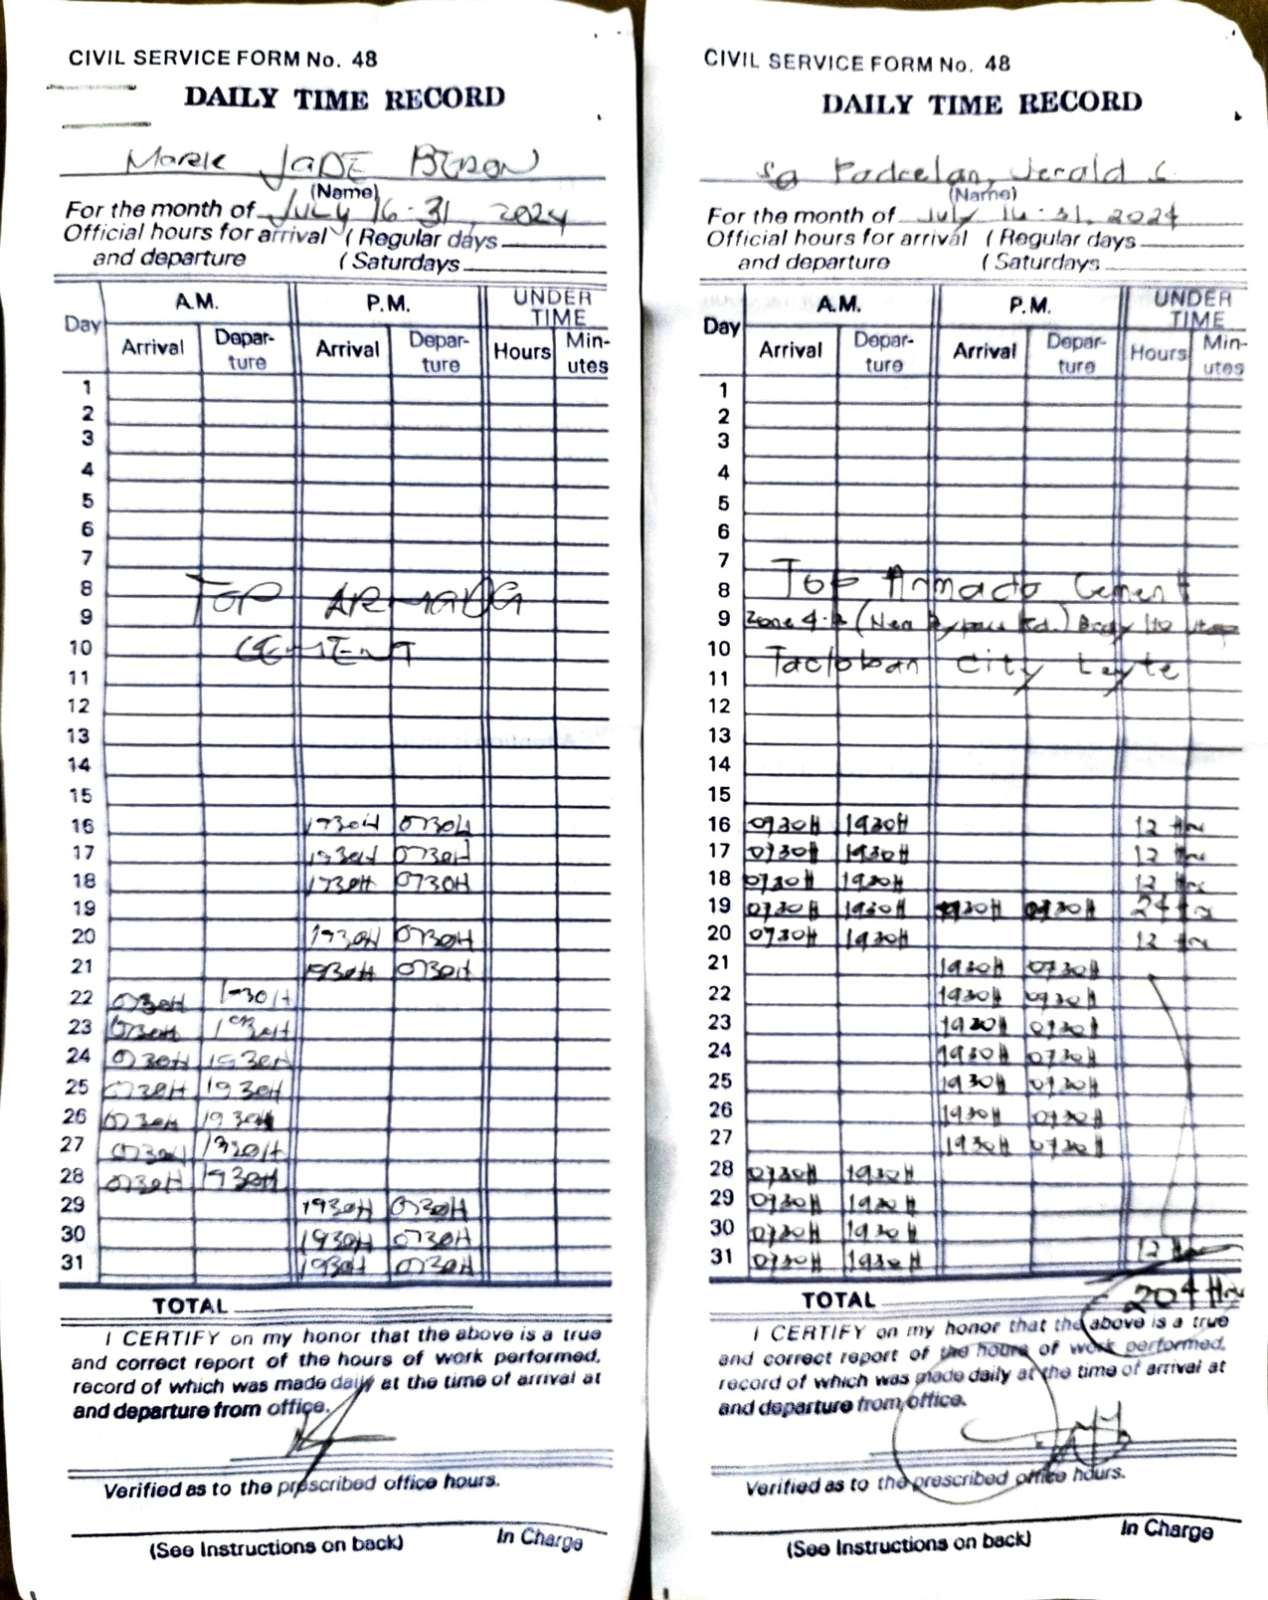 CIVIL SERVICE FORM No. 48
DAILY TIME RECORD
Mark JADE
(Name)
For the month of JULY 16-31, 2024
Official hours for arrival ( Regular days
and departure ( Saturdays
A.M. P.M. UNDER TIME
Day Arrival Depar-ture Arrival Depar-ture Hours Min-utes
1
2
3
4
5
6
7
8 TOP ARMADO
9
10 CEMENT
11
12
13
14
15
16 1930H 0730H
17 1930H 0730H
18 1930H 0730H
19
20 1930H 0730H
21 1930H 0730H
22 0730H 1930H
23 0730H 1930H
24 0730H 1930H
25 0730H 1930H
26 0730H 1930H
27 0730H 1930H
28 0730H 1930H
29 1930H 0730H
30 1930H 0730H
31 1930H 0730H
TOTAL
I CERTIFY on my honor that the above is a true
and correct report of the hours of work performed,
record of which was made daily at the time of arrival at
and departure from office.
Verified as to the prescribed office hours.
(See Instructions on back) In Charge
CIVIL SERVICE FORM No. 48
DAILY TIME RECORD
Jerald C.
(Name)
For the month of July 16-31, 2024
Official hours for arrival ( Regular days
and departure ( Saturdays
A.M. P.M. UNDER TIME
Day Arrival Depar-ture Arrival Depar-ture Hours Min-utes
1
2
3
4
5
6
7
8 Top Armado Cement
9 Zone 4-A (Near Bypass Rd.) Brgy 110
10 Tacloban City Leyte
11
12
13
14
15
16 0730H 1930H 12 Hrs
17 0730H 1930H 12 Hrs
18 0730H 1930H 12 Hrs
19 0730H 1930H 1930H 0730H 24 Hrs
20 0730H 1930H 12 Hrs
21 1930H 0730H
22 1930H 0730H
23 1930H 0730H
24 1930H 0730H
25 1930H 0730H
26 1930H 0730H
27 1930H 0730H
28 0730H 1930H
29 0730H 1930H
30 0730H 1930H
31 0730H 1930H 12 Hrs
TOTAL 204 Hrs
I CERTIFY on my honor that the above is a true
and correct report of the hours of work performed,
record of which was made daily at the time of arrival at
and departure from office.
Verified as to the prescribed office hours.
(See Instructions on back) In Charge